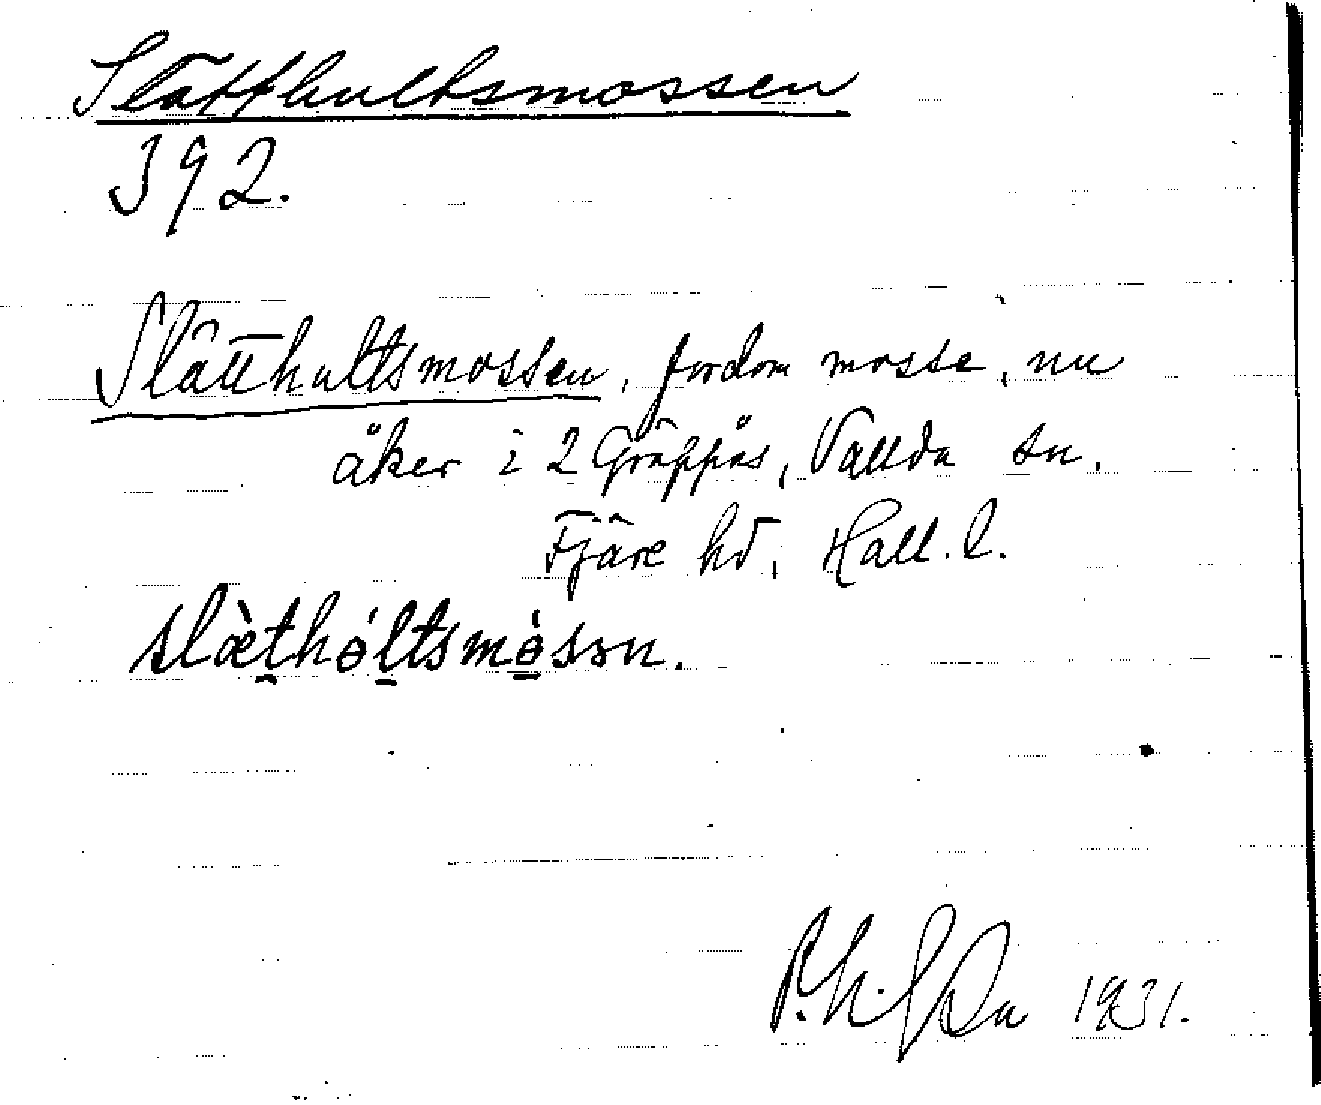 Slätthultsmossen
392.
Slätthultsmossen, fordom mosse, nu
åker i 2 Gräppås, Vallda sn.
Fjäre hd, Hall. l.
slæ̀thóltsmòsən.
1931.